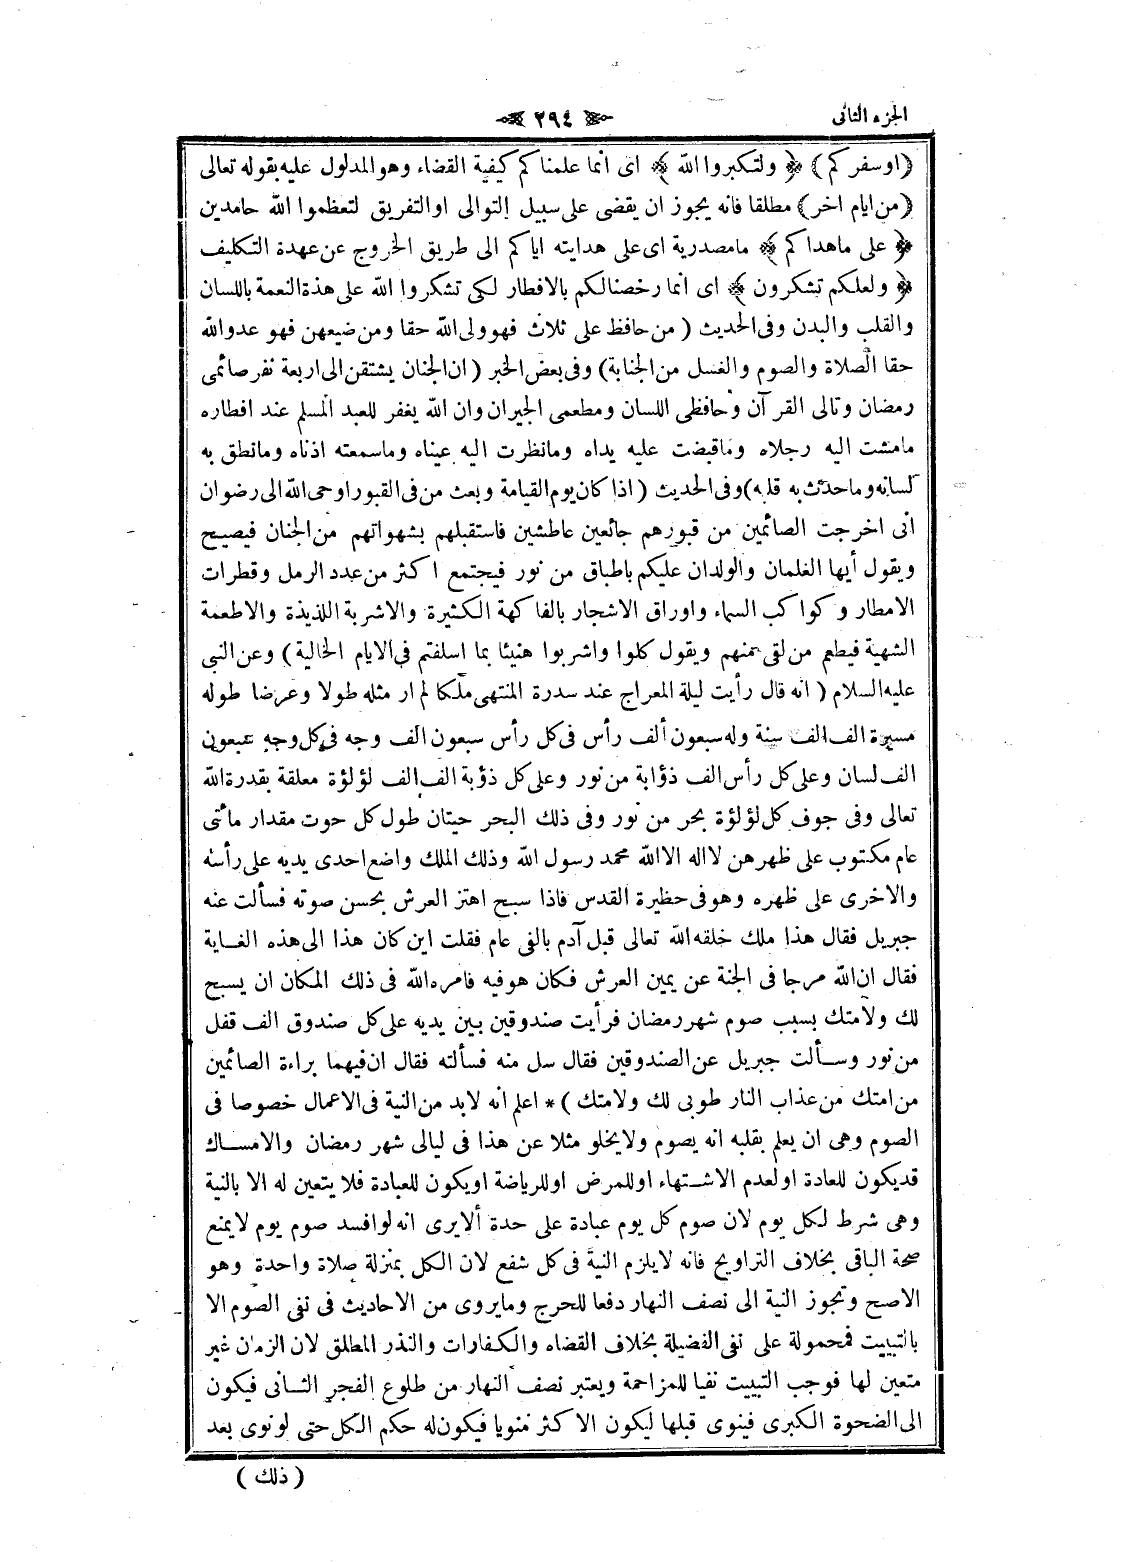 الجزء الثانى
٢٩٤
(اوسفركم) ﴿ ولتكبروا الله ﴾ اى انما علمناكم كيفية القضاء وهو المدلول عليه بقوله تعالى
(من ايام اخر) مطلقا فانه يجوز ان يقضى على سبيل التوالى او التفريق لتعظموا الله حامدين
﴿ على ماهداكم ﴾ مامصدرية اى على هدايته اياكم الى طريق الخروج عن عهدة التكليف
﴿ ولعلكم تشكرون ﴾ اى انما رخصنالكم بالافطار لكى تشكروا الله على هذة النعمة باللسان
والقلب والبدن وفى الحديث ( من حافظ على ثلاث فهو ولى الله حقا ومن ضيعهن فهو عدوالله
حقا الصلاة والصوم والغسل من الجنابة) وفى بعض الخبر ( ان الجنان يشتقن الى اربعة نفر صائمى
رمضان وتالى القرآن وحافظى اللسان ومطعمى الجيران وان الله يغفر للعبد المسلم عند افطاره
مامشت اليه رجلاه وماقبضت عليه يداه ومانظرت اليه عيناه وماسمعته اذناه ومانطق به
لسانه وماحدث به قلبه) وفى الحديث ( اذا كان يوم القيامة وبعث من فى القبور اوحى الله الى رضوان
انى اخرجت الصائمين من قبورهم جائعين عاطشين فاستقبلهم بشهواتهم من الجنان فيصيح
ويقول أيها الغلمان والولدان عليكم باطباق من نور فيجتمع اكثر من عدد الرمل وقطرات
الامطار وكواكب السماء واوراق الاشجار بالفاكهة الكثيرة والاشربة اللذيذة والاطعمة
الشهية فيطعم من لقى منهم ويقول كلوا واشربوا هنيئا بما اسلفتم فى الايام الخالية ) وعن النبى
عليه السلام ( انه قال رأيت ليلة المعراج عند سدرة المنتهى ملكا لم ار مثله طولا وعرضا طوله
مسيرة الف الف سنة وله سبعون ألف رأس فى كل رأس سبعون الف وجه فى كل وجه سبعون
الف لسان وعلى كل رأس الف ذؤابة من نور وعلى كل ذؤبة الف الف لؤلؤة معلقة بقدرة الله
تعالى وفى جوف كل لؤلؤة بحر من نور وفى ذلك البحر حيتان طول كل حوت مقدار مائتى
عام مكتوب على ظهرهن لااله الاالله محمد رسول الله وذلك الملك واضع احدى يديه على رأسه
والاخرى على ظهره وهو فى حظيرة القدس فاذا سبح اهتز العرش بحسن صوته فسألت عنه
جبريل فقال هذا ملك خلقه الله تعالى قبل آدم بالفى عام فقلت اين كان هذا الى هذه الغاية
فقال ان الله مرجا فى الجنة عن يمين العرش فكان هو فيه فامره الله فى ذلك المكان ان يسبح
لك ولامتك بسبب صوم شهر رمضان فرأيت صندوقين بين يديه على كل صندوق الف قفل
من نور وسألت جبريل عن الصندوقين فقال سل منه فسألته فقال ان فيهما براءة الصائمين
من امتك من عذاب النار طوبى لك ولامتك ) * اعلم انه لابد من النية فى الاعمال خصوصا فى
الصوم وهى ان يعلم بقلبه انه يصوم ولايخلو مثلا عن هذا فى ليالى شهر رمضان والامساك
قديكون للعادة اولعدم الاشتهاء اوللمرض اوللرياضة اويكون للعبادة فلا يتعين له الا بالنية
وهى شرط لكل يوم لان صوم كل يوم عبادة على حدة ألايرى انه لوافسد صوم يوم لايمنع
صحة الباقى بخلاف التراويح فانه لايلزم النية فى كل شفع لان الكل بمنزلة صلاة واحدة وهو
الاصح وتجوز النية الى نصف النهار دفعا للحرج ومايروى من الاحاديث فى نفى الصوم الا
بالتبييت فمحمولة على نفى الفضيلة بخلاف القضاء والكفارات والنذر المطلق لان الزمان غير
متعين لها فوجب التبييت نفيا للمزاحمة ويعتبر نصف النهار من طلوع الفجر الثانى فيكون
الى الضحوة الكبرى فينوى قبلها ليكون الاكثر منويا فيكون له حكم الكل حتى لونوى بعد
( ذلك )